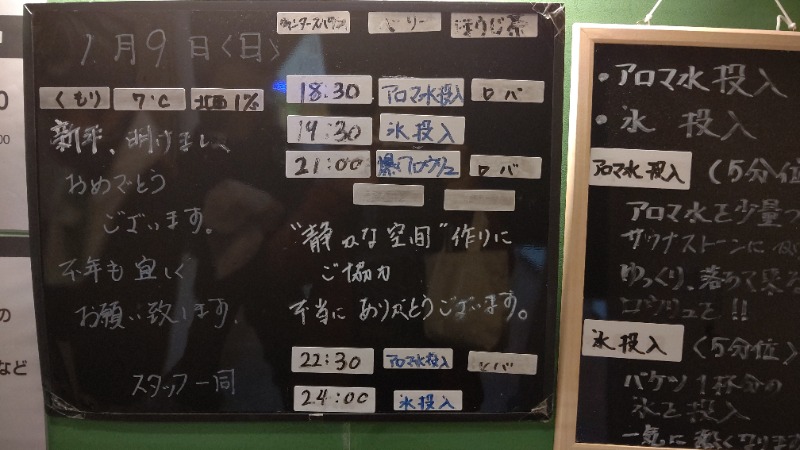 1月9日〈日〉
ほうじ茶
くもり 7℃
18:30 アロマ水投入 ロバ
19:30 氷投入
21:00 爆アロウリュ ロバ
新年、明けまして
おめでとう
ございます。
本年も宜しく
お願い致します。
スタッフ一同
"静かな空間"作りに
ご協力
本当にありがとうございます。
22:30 アロマ水投入 ロバ
24:00 氷投入
・アロマ水投入
・氷 投入
アロマ水投入 (5分位
アロマ水を少量つ
サウナストーンに
ゆっくり、落
ロウリュを!!
氷投入 〈5分位〉
バケツ1杯分の
氷を投入
一気に熱くなります
の
など